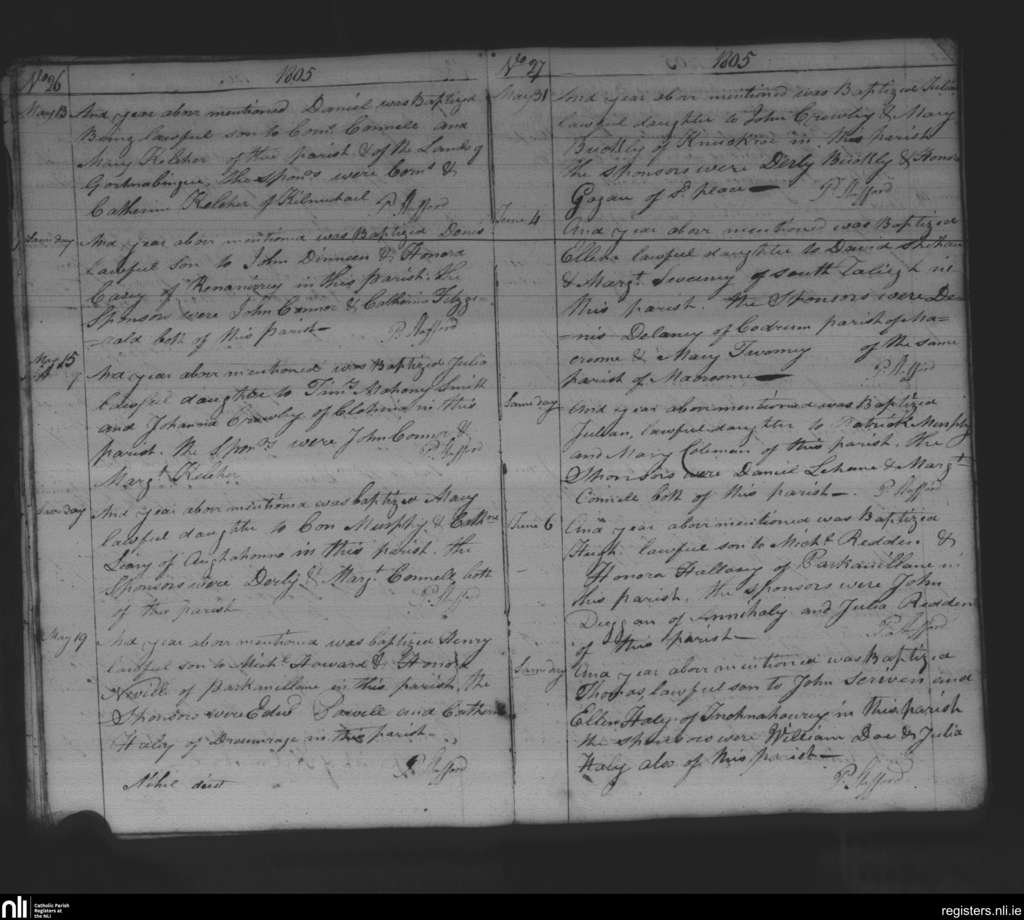 No 26
1805
May 13
And year above mentioned Daniel was Baptized
Being lawful son to Corns. Connell and
Mary Kelcher of this parish & of the Lands of
the Sponrs were Corns &
Catherine Kelcher of Kilmichael P. Stafford
Same day
And year above mentioned was Baptized Denis
Lawful son to John Dinneen & Honora
Casey of in this parish. the
Sponsors were John Connor & Catherine Fitzge
=rald both of this parish— P. Stafford
May 15
And year above mentioned was Baptized Julia
Lawful daughter to Timy. Mahony Smith
and Johanna Crowly of Cloheina in this
parish. the Sponrs were John Connor &
Margt. Kelcher P. Stafford
Same day
And year above mentioned was baptized Mary
lawful daughter to Con Murphy & Cathne
Leary of in this parish the
Sponsors were Derby & Margt. Connell, both
of this parish P. Stafford
May 19
And year above mentioned was baptized Henry
lawful son to Michl. Howard & Honora
Nevill of Parkmillane in this parish. the
Sponsors were Edwd and Cathern
Haly of in this parish—
P. Stafford
Nihil deest
No 27
1805
May 31
And year above mentioned was Baptized
lawful daughter to John Crowley & Mary
Buckley of in this parish
the sponsors were Derby Buckly & Honor
of Do. place— P. Stafford
June 4
And year above mentioned was Baptized
Ellen lawful daughter to David Shehan
& Margt. Sweeny of South in
this parish. the Sponsors were De-
nis Delaney of Codrum parish of Ma-
croome & Mary Twomey of the same
parish of Macroome— P. Stafford
Same day
And year above mentioned was Baptized
Julian, lawful daughter to Patrick Murphy
and Mary Coleman of this parish, the
Sponsors were Daniel Lehane & Margt
Connell both of this parish—. P. Stafford
June 6
And year above mentioned was Baptized
Hugh lawful son to Michl. Redden &
Honora Hallasey of Parkamillane in
this parish, the sponsors were John
Duggan of and Julia Redden
of this parish— P. Stafford
Same day
And year above mentioned was Baptized
Thomas, lawful son to John and
Ellen Haly of in this parish
the sponsors were William Doe & Julia
Haly also of this parish—
P. Stafford
nli
Catholic Parish
Registers at
the NLI
registers.nli.ie